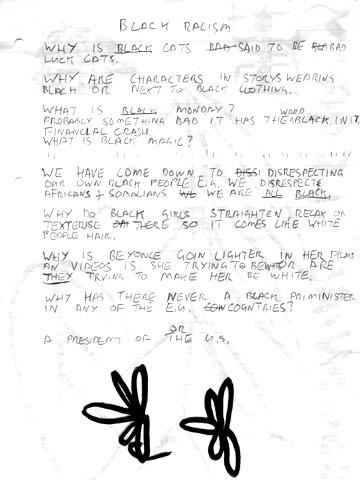 BLACK RACISM
WHY IS BLACK CATS BAD SAID TO BE BAD
LUCK CATS.
WHY ARE CHARACTERS IN STORYS WEARING
BLACK OR NEXT TO BLACK CLOTHING.
WHAT IS BLACK MONDAY?
PROBABLY SOMETHING BAD IT HAS THE WORD BLACK IN IT
FINANCIAL CRASH
WHAT IS BLACK MAGIC?
" " " " " " " " " "
WE HAVE COME DOWN TO DISSI DISRESPECTING
OUR OWN BLACK PEOPLE E.G. WE DISRESPECT
AFRICANS + SOMALIANS WE WE ARE ALL BLACK.
WHY DO BLACK GIRLS STRAIGHTEN, RELAX OR
TEXTERISE THERE SO IT COMES LIKE WHITE
PEOPLE HAIR.
WHY IS BEYONCE GOIN LIGHTER IN HER FILMS
AN VIDEOS IS SHE TRYING TO BE OR ARE
THEY TRYING TO MAKE HER BE WHITE.
WHY HAS THERE NEVER A BLACK PRIMINISTER
IN ANY OF THE E.U. COUNTRIES?
OR
A PRESIDENT OF THE U.S.